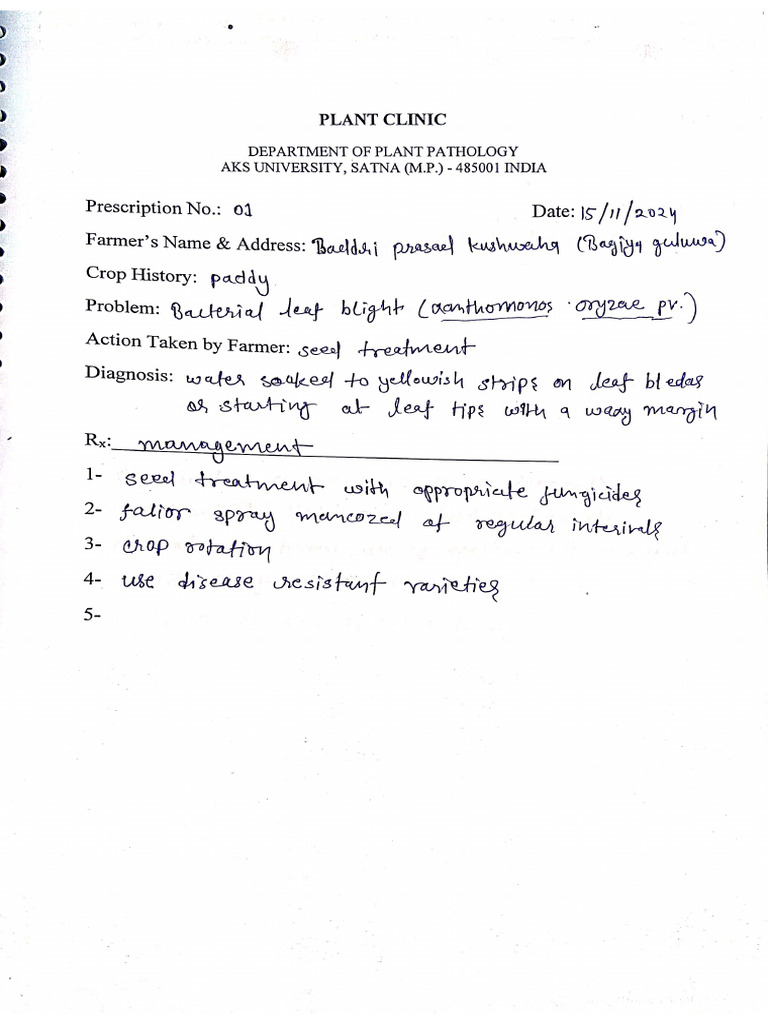 PLANT CLINIC
DEPARTMENT OF PLANT PATHOLOGY
AKS UNIVERSITY, SATNA (M.P.) - 485001 INDIA
Prescription No.: 01 Date: 15/11/2024
Farmer's Name & Address: Baeldri prasael kushwaha (Bagiya guluwa)
Crop History: paddy
Problem: Bacterial leaf blight (aanthomonos oryzae pv.)
Action Taken by Farmer: seed treatment
Diagnosis: water soaked to yellowish strips on leaf bledas
or starting at leaf tips with a wavy margin
Rx: management
1- seed treatment with appropriate fungicides
2- falior spray mancozed of regular interivals
3- crop rotation
4- use disease resistant varieties
5-